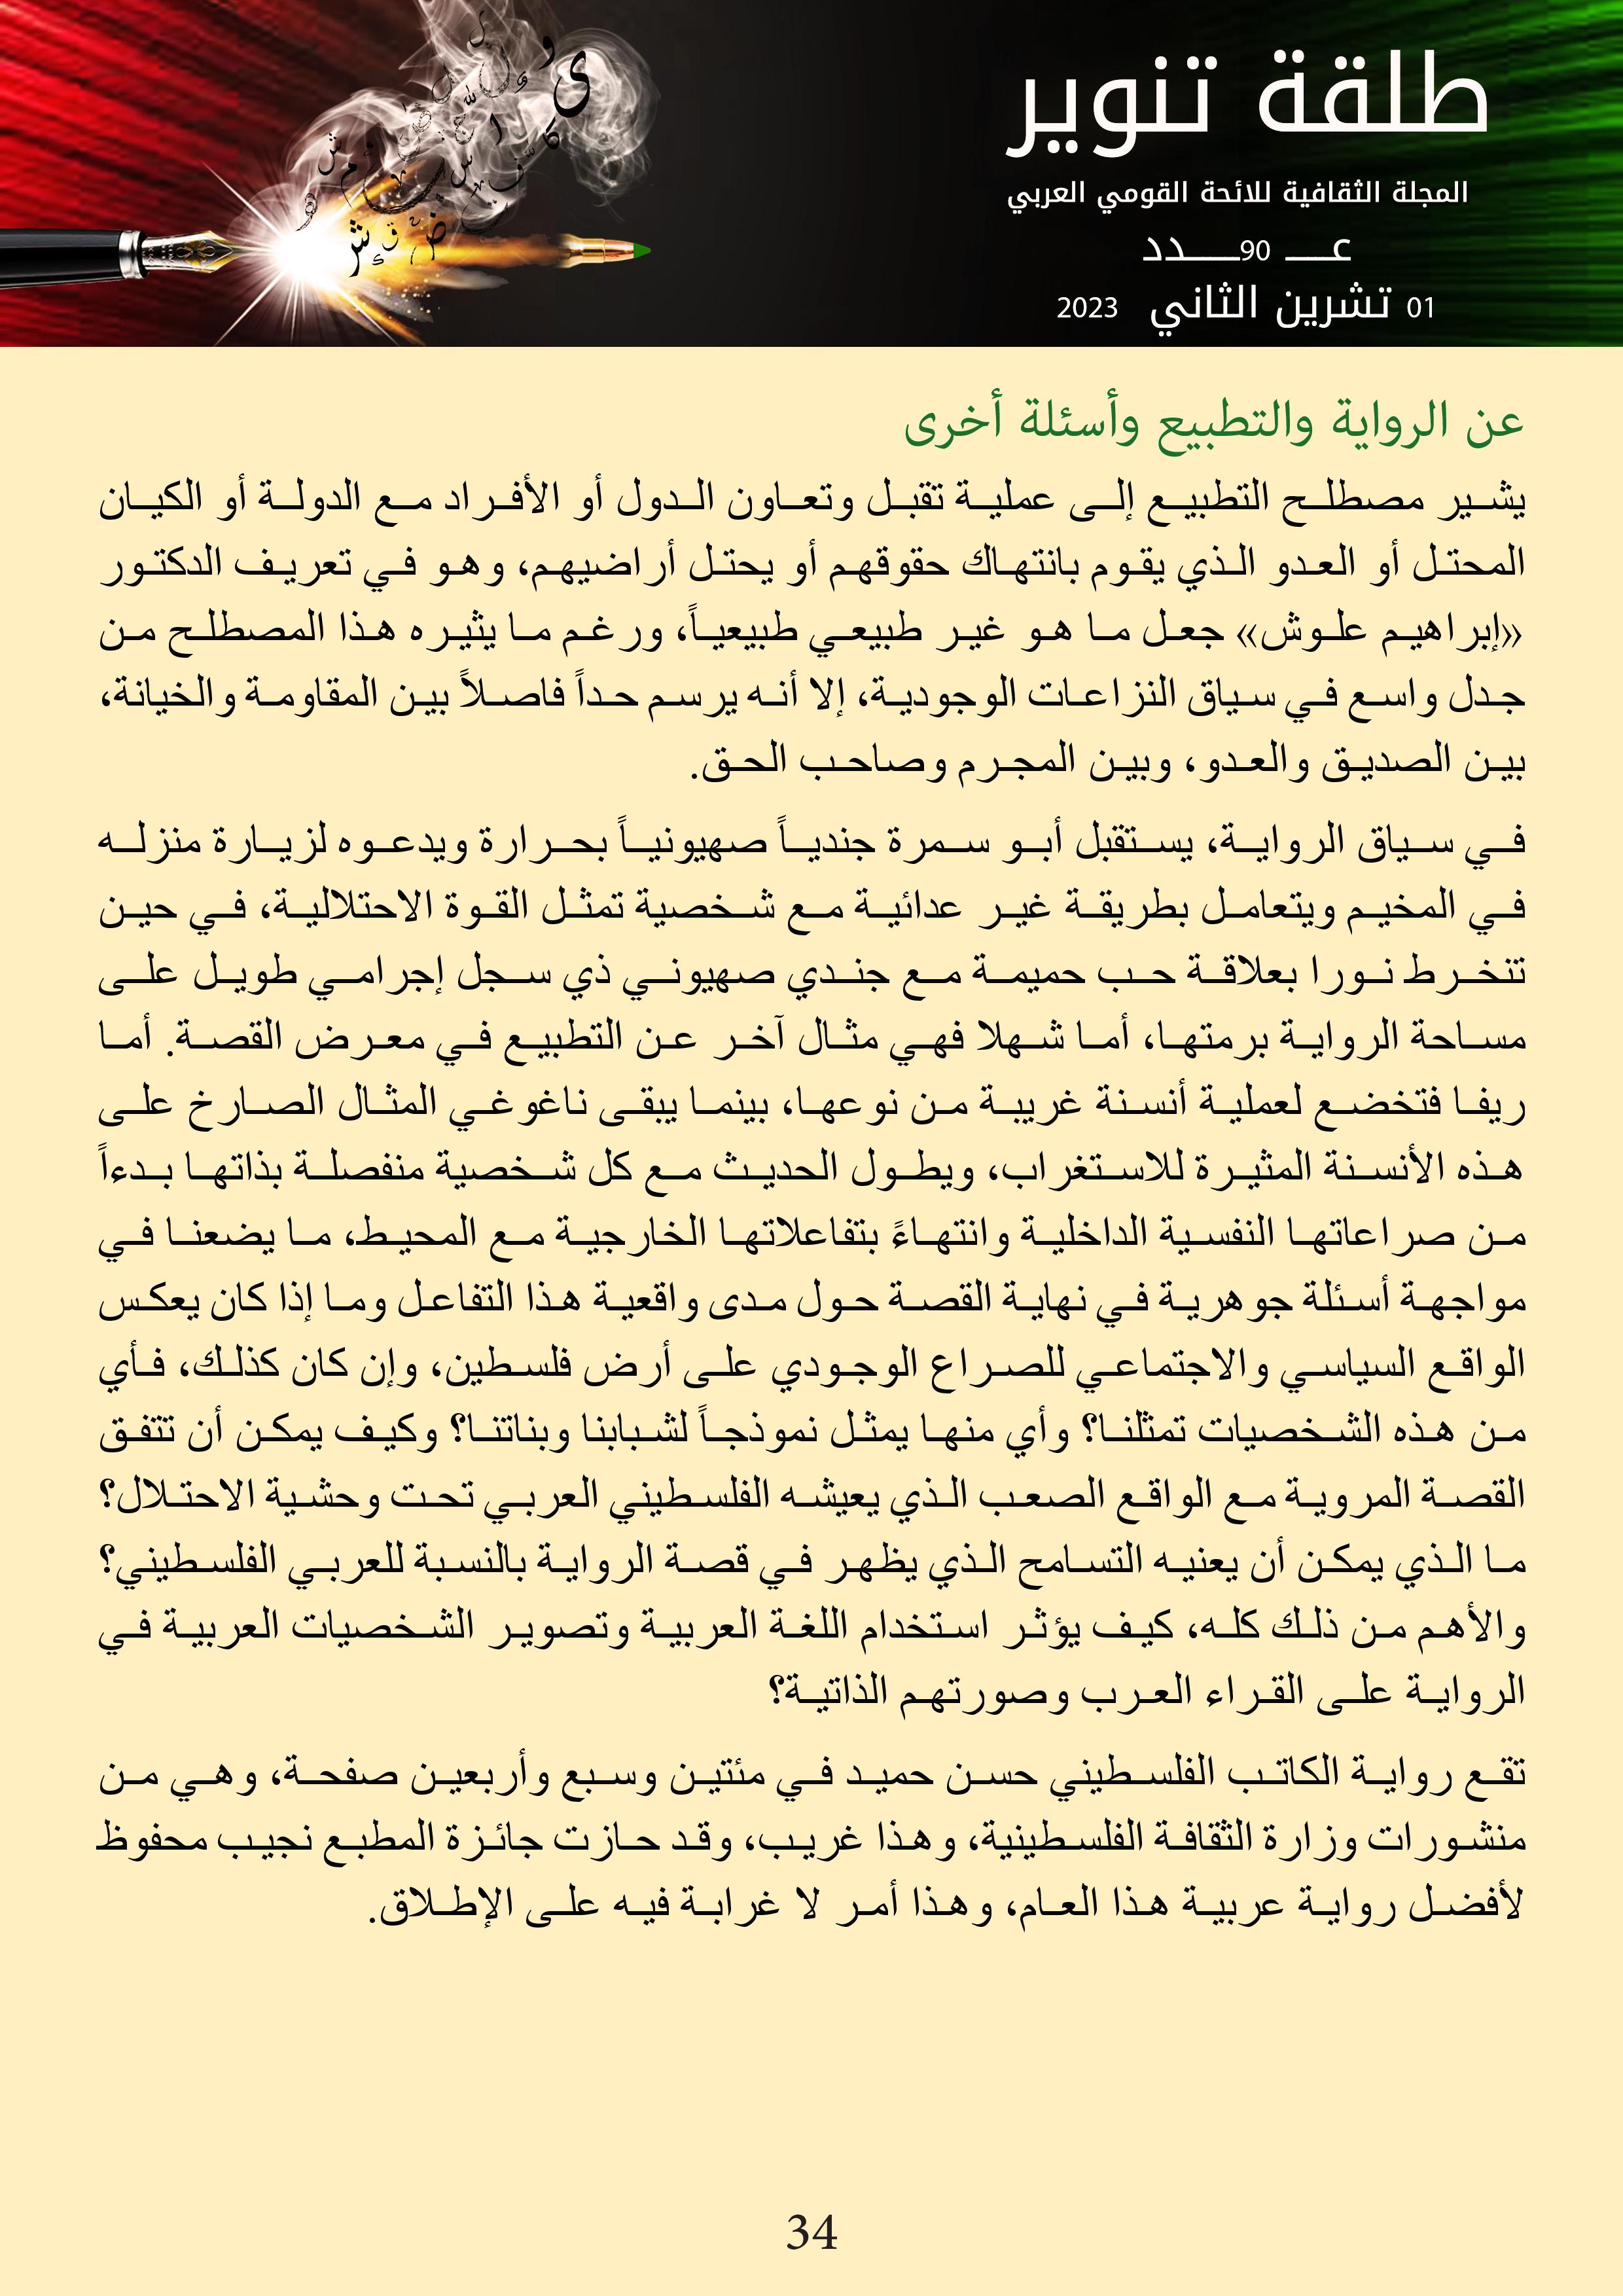 طلقة تنوير
المجلة الثقافية للائحة القومي العربي
عـــــ 90ـــــدد
01 تشرين الثاني 2023
عن الرواية والتطبيع وأسئلة أخرى
يشير مصطلح التطبيع إلى عملية تقبل وتعاون الدول أو الأفراد مع الدولة أو الكيان
المحتل أو العدو الذي يقوم بانتهاك حقوقهم أو يحتل أراضيهم، وهو في تعريف الدكتور
«إبراهيم علوش» جعل ما هو غير طبيعي طبيعياً، ورغم ما يثيره هذا المصطلح من
جدل واسع في سياق النزاعات الوجودية، إلا أنه يرسم حداً فاصلاً بين المقاومة والخيانة،
بين الصديق والعدو، وبين المجرم وصاحب الحق.
في سياق الرواية، يستقبل أبو سمرة جندياً صهيونياً بحرارة ويدعوه لزيارة منزله
في المخيم ويتعامل بطريقة غير عدائية مع شخصية تمثل القوة الاحتلالية، في حين
تنخرط نورا بعلاقة حب حميمة مع جندي صهيوني ذي سجل إجرامي طويل على
مساحة الرواية برمتها، أما شهلا فهي مثال آخر عن التطبيع في معرض القصة. أما
ريفا فتخضع لعملية أنسنة غريبة من نوعها، بينما يبقى ناغوغي المثال الصارخ على
هذه الأنسنة المثيرة للاستغراب، ويطول الحديث مع كل شخصية منفصلة بذاتها بدءاً
من صراعاتها النفسية الداخلية وانتهاءً بتفاعلاتها الخارجية مع المحيط، ما يضعنا في
مواجهة أسئلة جوهرية في نهاية القصة حول مدى واقعية هذا التفاعل وما إذا كان يعكس
الواقع السياسي والاجتماعي للصراع الوجودي على أرض فلسطين، وإن كان كذلك، فأي
من هذه الشخصيات تمثلنا؟ وأي منها يمثل نموذجاً لشبابنا وبناتنا؟ وكيف يمكن أن تتفق
القصة المروية مع الواقع الصعب الذي يعيشه الفلسطيني العربي تحت وحشية الاحتلال؟
ما الذي يمكن أن يعنيه التسامح الذي يظهر في قصة الرواية بالنسبة للعربي الفلسطيني؟
والأهم من ذلك كله، كيف يؤثر استخدام اللغة العربية وتصوير الشخصيات العربية في
الرواية على القراء العرب وصورتهم الذاتية؟
تقع رواية الكاتب الفلسطيني حسن حميد في مئتين وسبع وأربعين صفحة، وهي من
منشورات وزارة الثقافة الفلسطينية، وهذا غريب، وقد حازت جائزة المطبع نجيب محفوظ
لأفضل رواية عربية هذا العام، وهذا أمر لا غرابة فيه على الإطلاق.
34